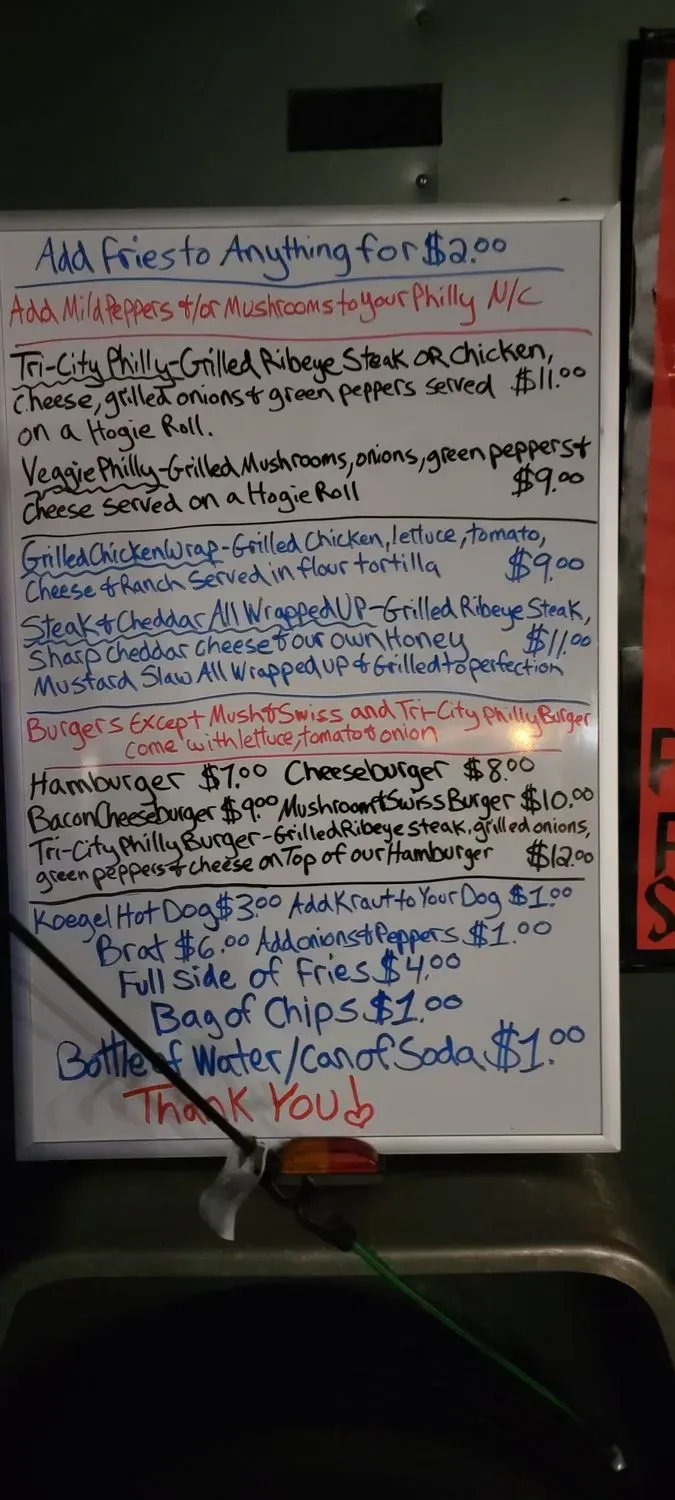 Add Fries to Anything for $2.00
Add Mild Peppers &/or Mushrooms to your Philly N/C
Tri-City Philly-Grilled Ribeye Steak OR Chicken,
Cheese, grilled onions & green peppers served $11.00
on a Hogie Roll.
Veggie Philly-Grilled Mushrooms, onions, green peppers &
Cheese served on a Hogie Roll $9.00
Grilled Chicken Wrap-Grilled Chicken, lettuce, tomato,
Cheese & Ranch Served in flour tortilla $9.00
Steak & Cheddar All Wrapped UP-Grilled Ribeye Steak,
Sharp Cheddar Cheese & our own Honey $11.00
Mustard Slaw All Wrapped up & Grilled to perfection
Burgers Except Mush & Swiss and Tri-City Philly Burger
come with lettuce, tomato & onion
Hamburger $7.00 Cheeseburger $8.00
Bacon Cheeseburger $9.00 Mushroom & Swiss Burger $10.00
Tri-City Philly Burger-Grilled Ribeye steak, grilled onions,
green peppers & cheese on Top of our Hamburger $12.00
Koegel Hot Dog $3.00 Add Kraut to Your Dog $1.00
Brat $6.00 Add onions & Peppers $1.00
Full Side of Fries $4.00
Bag of Chips $1.00
Bottle of Water/Can of Soda $1.00
Thank You!